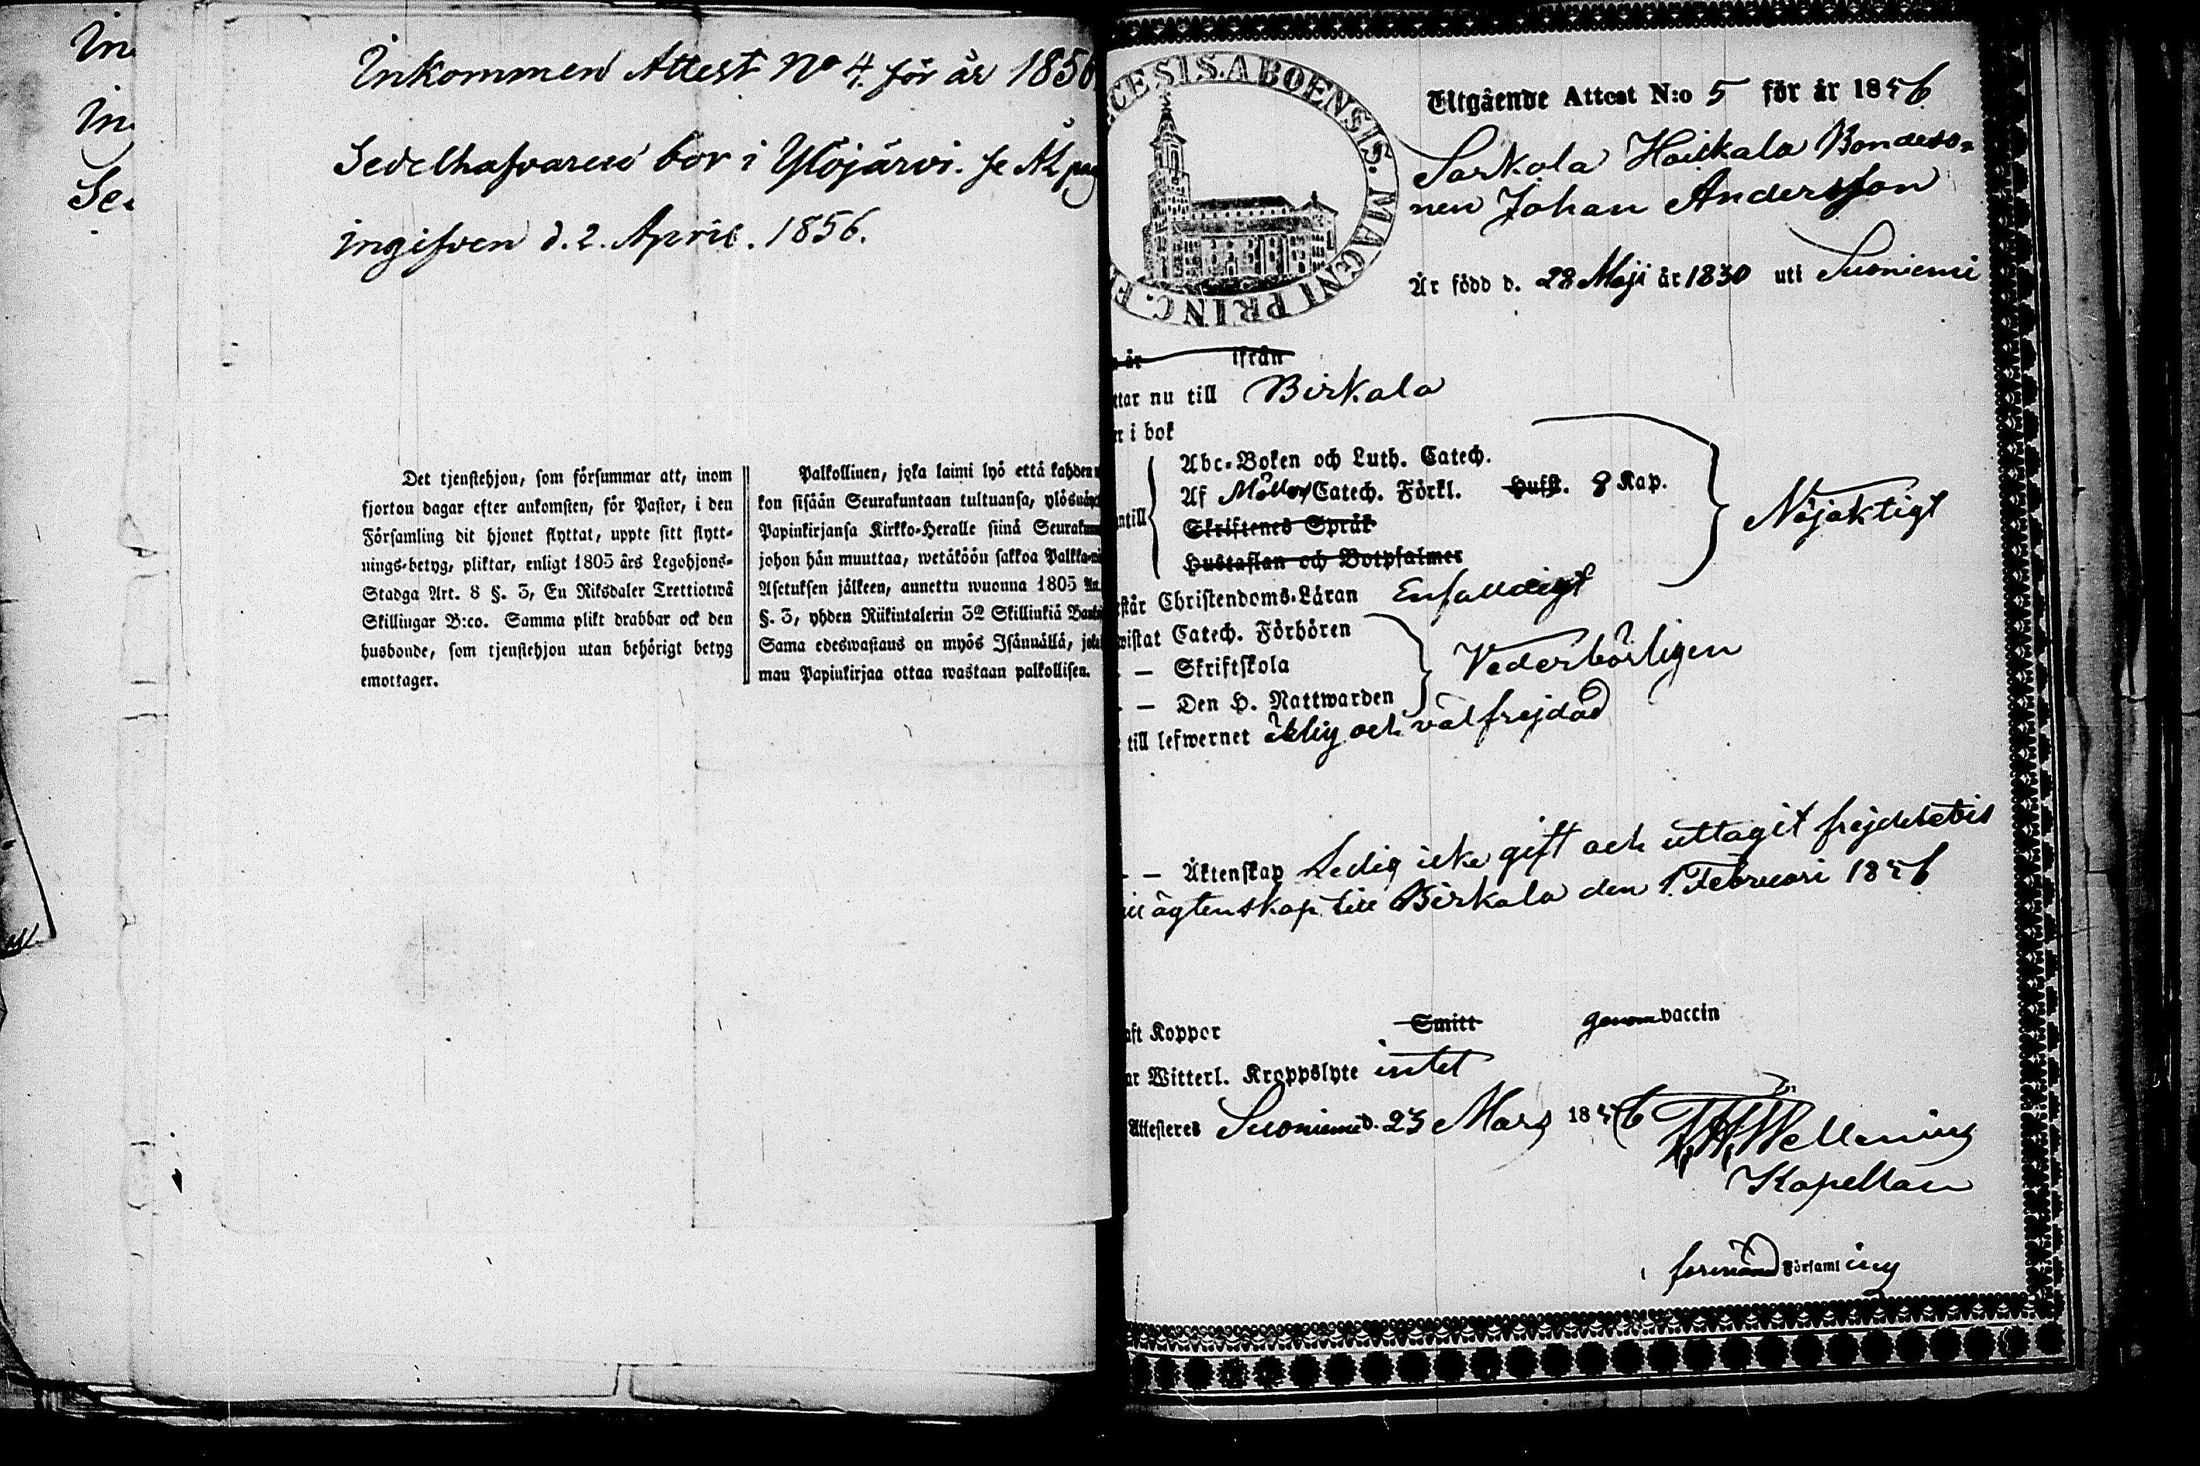 In
In
Se
Inkommen Attest No 4. för år 1856
Sedelhafvaren bor i Ylöjärvi. se AL pag
ingifven d. 2. April. 1856.
Det tjenstehjon, som försummar att, inom
fjorton dagar efter ankomsten, för Pastor, i den
Församling dit hjonet flyttat, uppte sitt flytt-
nings-betyg, pliktar, enligt 1805 års Legohjons-
Stadga Art. 8 §. 3, En Riksdaler Trettiotwå
Skillingar B:co. Samma plikt drabbar ock den
husbonde, som tjenstehjon utan behörigt betyg
emottager.
Palkollinen, joka laimi lyö että kahden
kon sisään Seurakuntaan tultuansa, ylösnäy
Papinkirjansa Kirkko-Heralle siinä Seurakun
johon hän muuttaa, wetäköön sakkoa Palkka-
Asetuksen jälkeen, annettu wuonna 1805 Art.
§. 3, yhden Riikintalerin 32 Skillinkiä Banko
Sama edeswastaus on myös Isännällä, joka
man Papinkirjaa ottaa wastaan palkollisen.
CESIS. ABOENSIS. MAGNI PRINC. F
Utgående Attest N:o 5 för år 1856
Sarkola Haikala Bondeso-
nen Johan Andersson
Är född d. 28 Maji år 1830 uti Suoniemi
år ifrån
ttar nu till Birkala
er i bok
Abc-Boken och Luth. Catech.
Af Möllers Catech. Förkl. Husst. 8 Kap.
Skriftenes Språk
ntill
Nöjaktigt
Hustaflan och Botpsalmer
står Christendoms-Läran Enfaldeligt
wistat Catech. Förhören
— Skriftskola
Vederbörligen
— Den H. Nattwarden
till lefwernet ärlig och välfrejdad
— Äktenskap Ledig icke gift och uttagit frejdebetis
till ägtenskap till Birkala den 1 Februari 1856
aft Koppor Smitt genom vaccin
ar Witterl. Kroppslyte intet
Attesteres Suoniemi d. 23 Mars 1856
Kapellan
i Församling